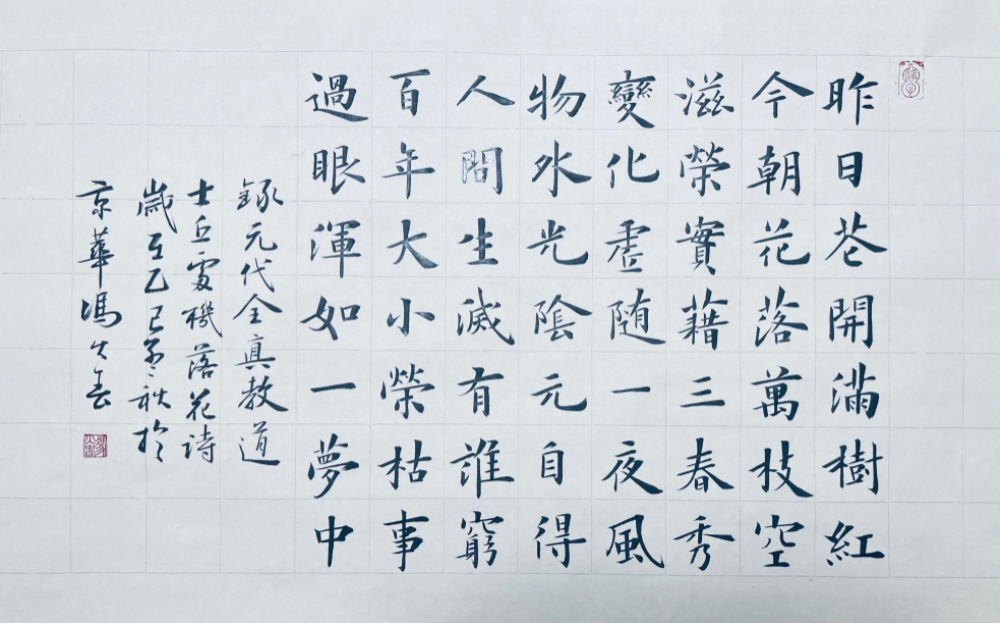 昨日苍開滿樹紅
今朝花落萬枝空
滋榮實藉三春秀
變化虛随一夜風
物外光陰元自得
人間生滅有誰窮
百年大小榮枯事
過眼渾如一夢中
録元代全真教道
士丘處機落花诗
歲在乙巳孟秋於
京華馮